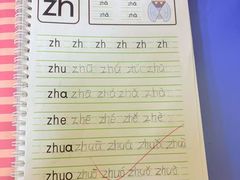 zh
zhā zhá
zhǎ zhà
zh zh zh zh zh zh
zhu zhū zhú zhǔ zhù
zha zhā zhá zhǎ zhà
zhe zhē zhé zhě zhè
zhua zhuā zhuá zhuǎ zhuà
zhuo zhuō zhuó zhuǒ zhuò